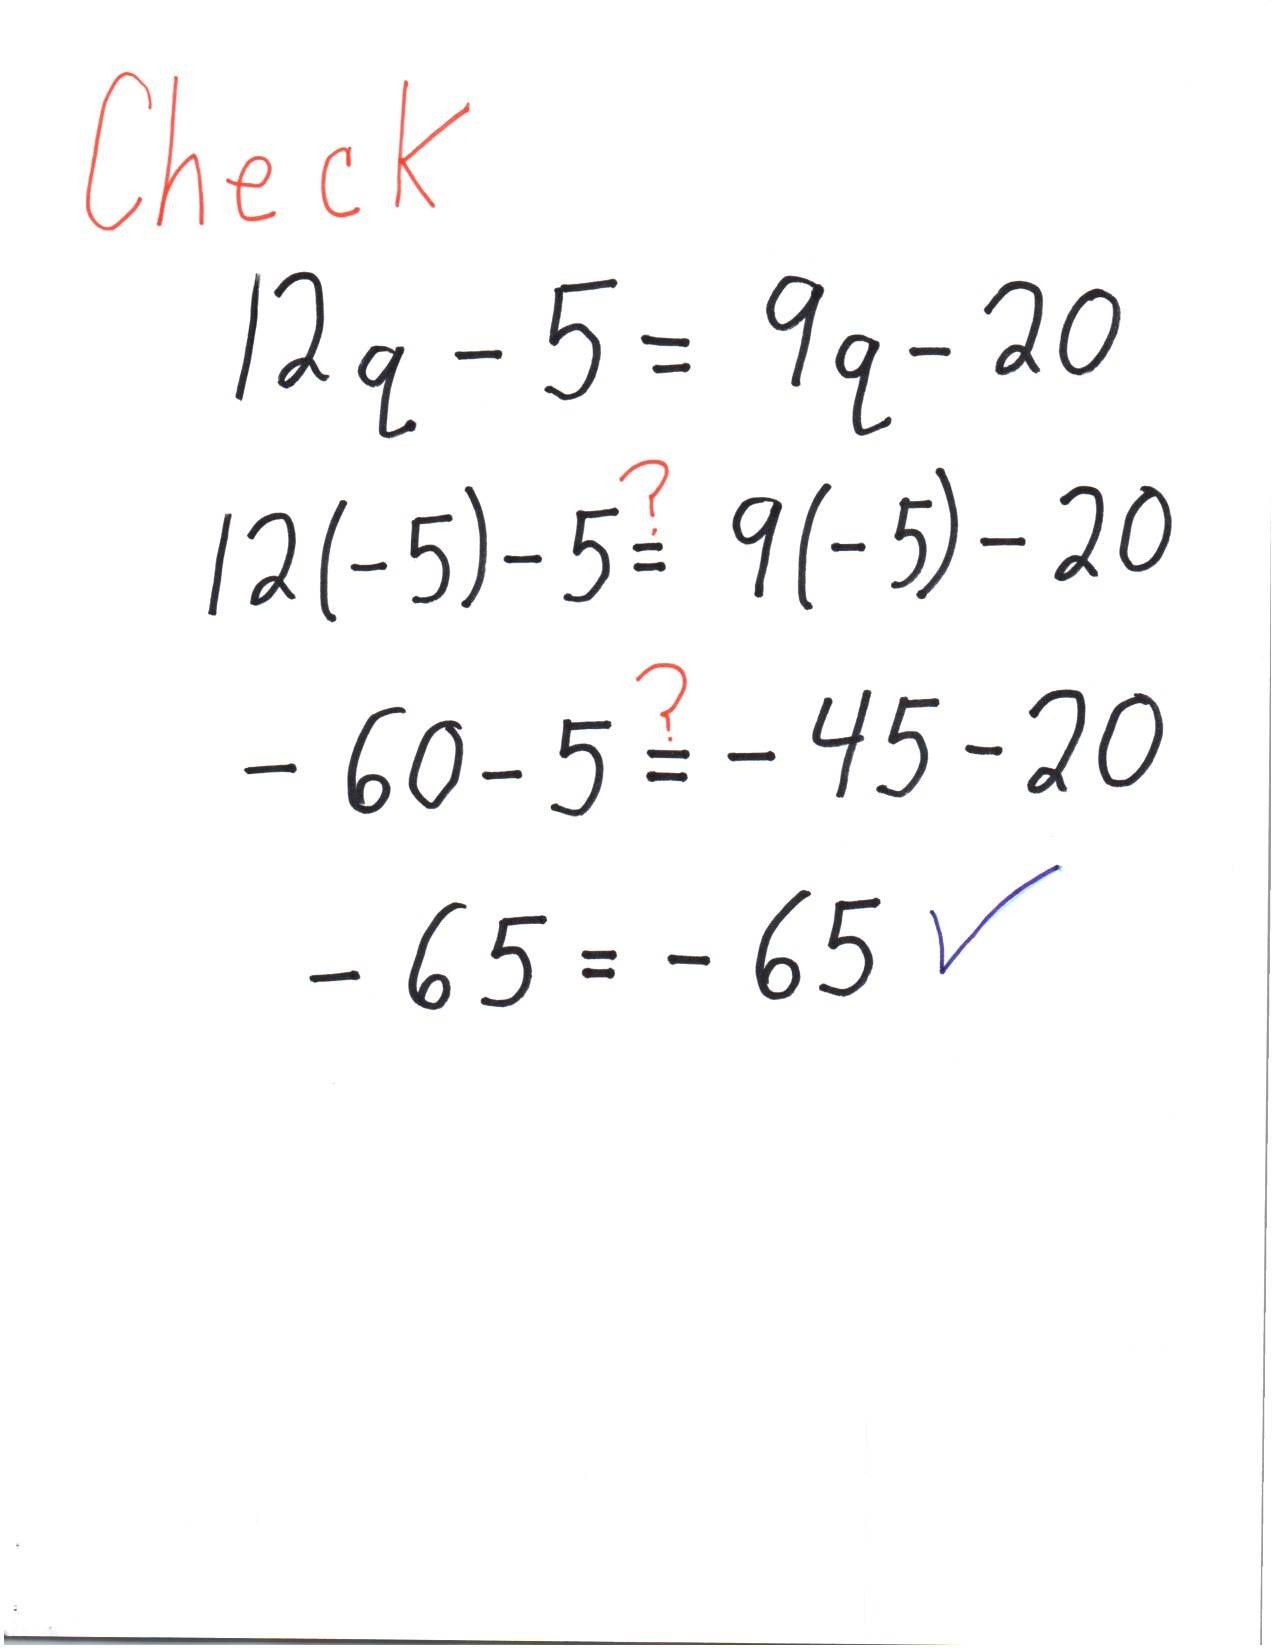 Check
12q - 5 = 9q - 20
12(-5) - 5 ≟ 9(-5) - 20
- 60 - 5 ≟ - 45 - 20
- 65 = - 65 ✓